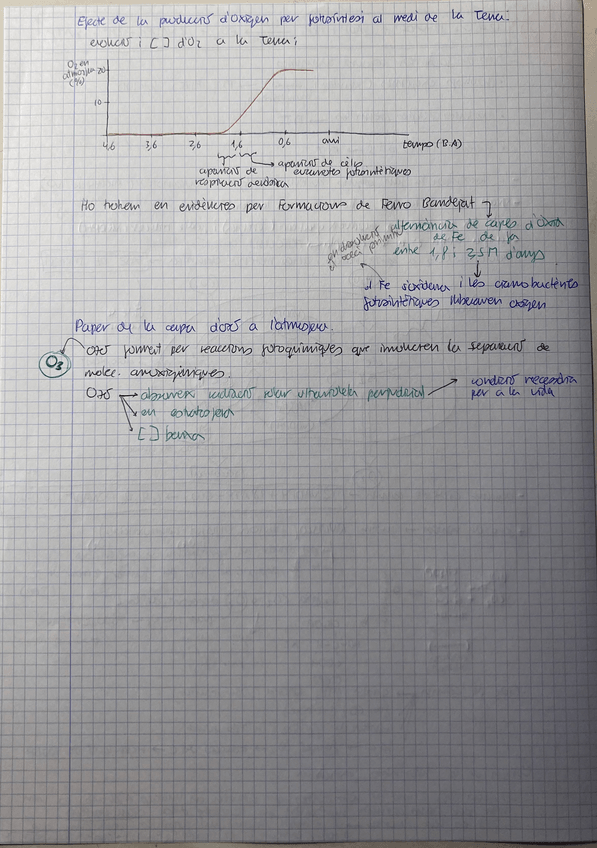 Efecte de la producció d'Oxigen per fotosíntesi al medi de la Terra:
evolució i [ ] d'O₂ a la Terra;
O₂ en
atmosfera
(%)
20
10
4,6 3,6 2,6 1,6 0,6 avui temps (B.A)
aparició de
respiració aeròbica
aparició de cèls
eucariotes fotosintètiques
Ho trobem en evidències per Formacions de Ferro Bandejat
alternància de capes d'òxid
de Fe de fa
entre 1,8 i 2,5 M d'anys
el Fe s'oxidava i les cianobactèries
fotosintètiques lliberaven oxigen
Paper de la capa d'ozó a l'atmosfera.
O₃
Ozó format per reaccions fotoquímiques que involucren la separació de
molèc.
Ozó → absorveix radiació solar ultravioleta perjudicial → condició necessària
per a la vida
en estratosfera
[ ] baixa